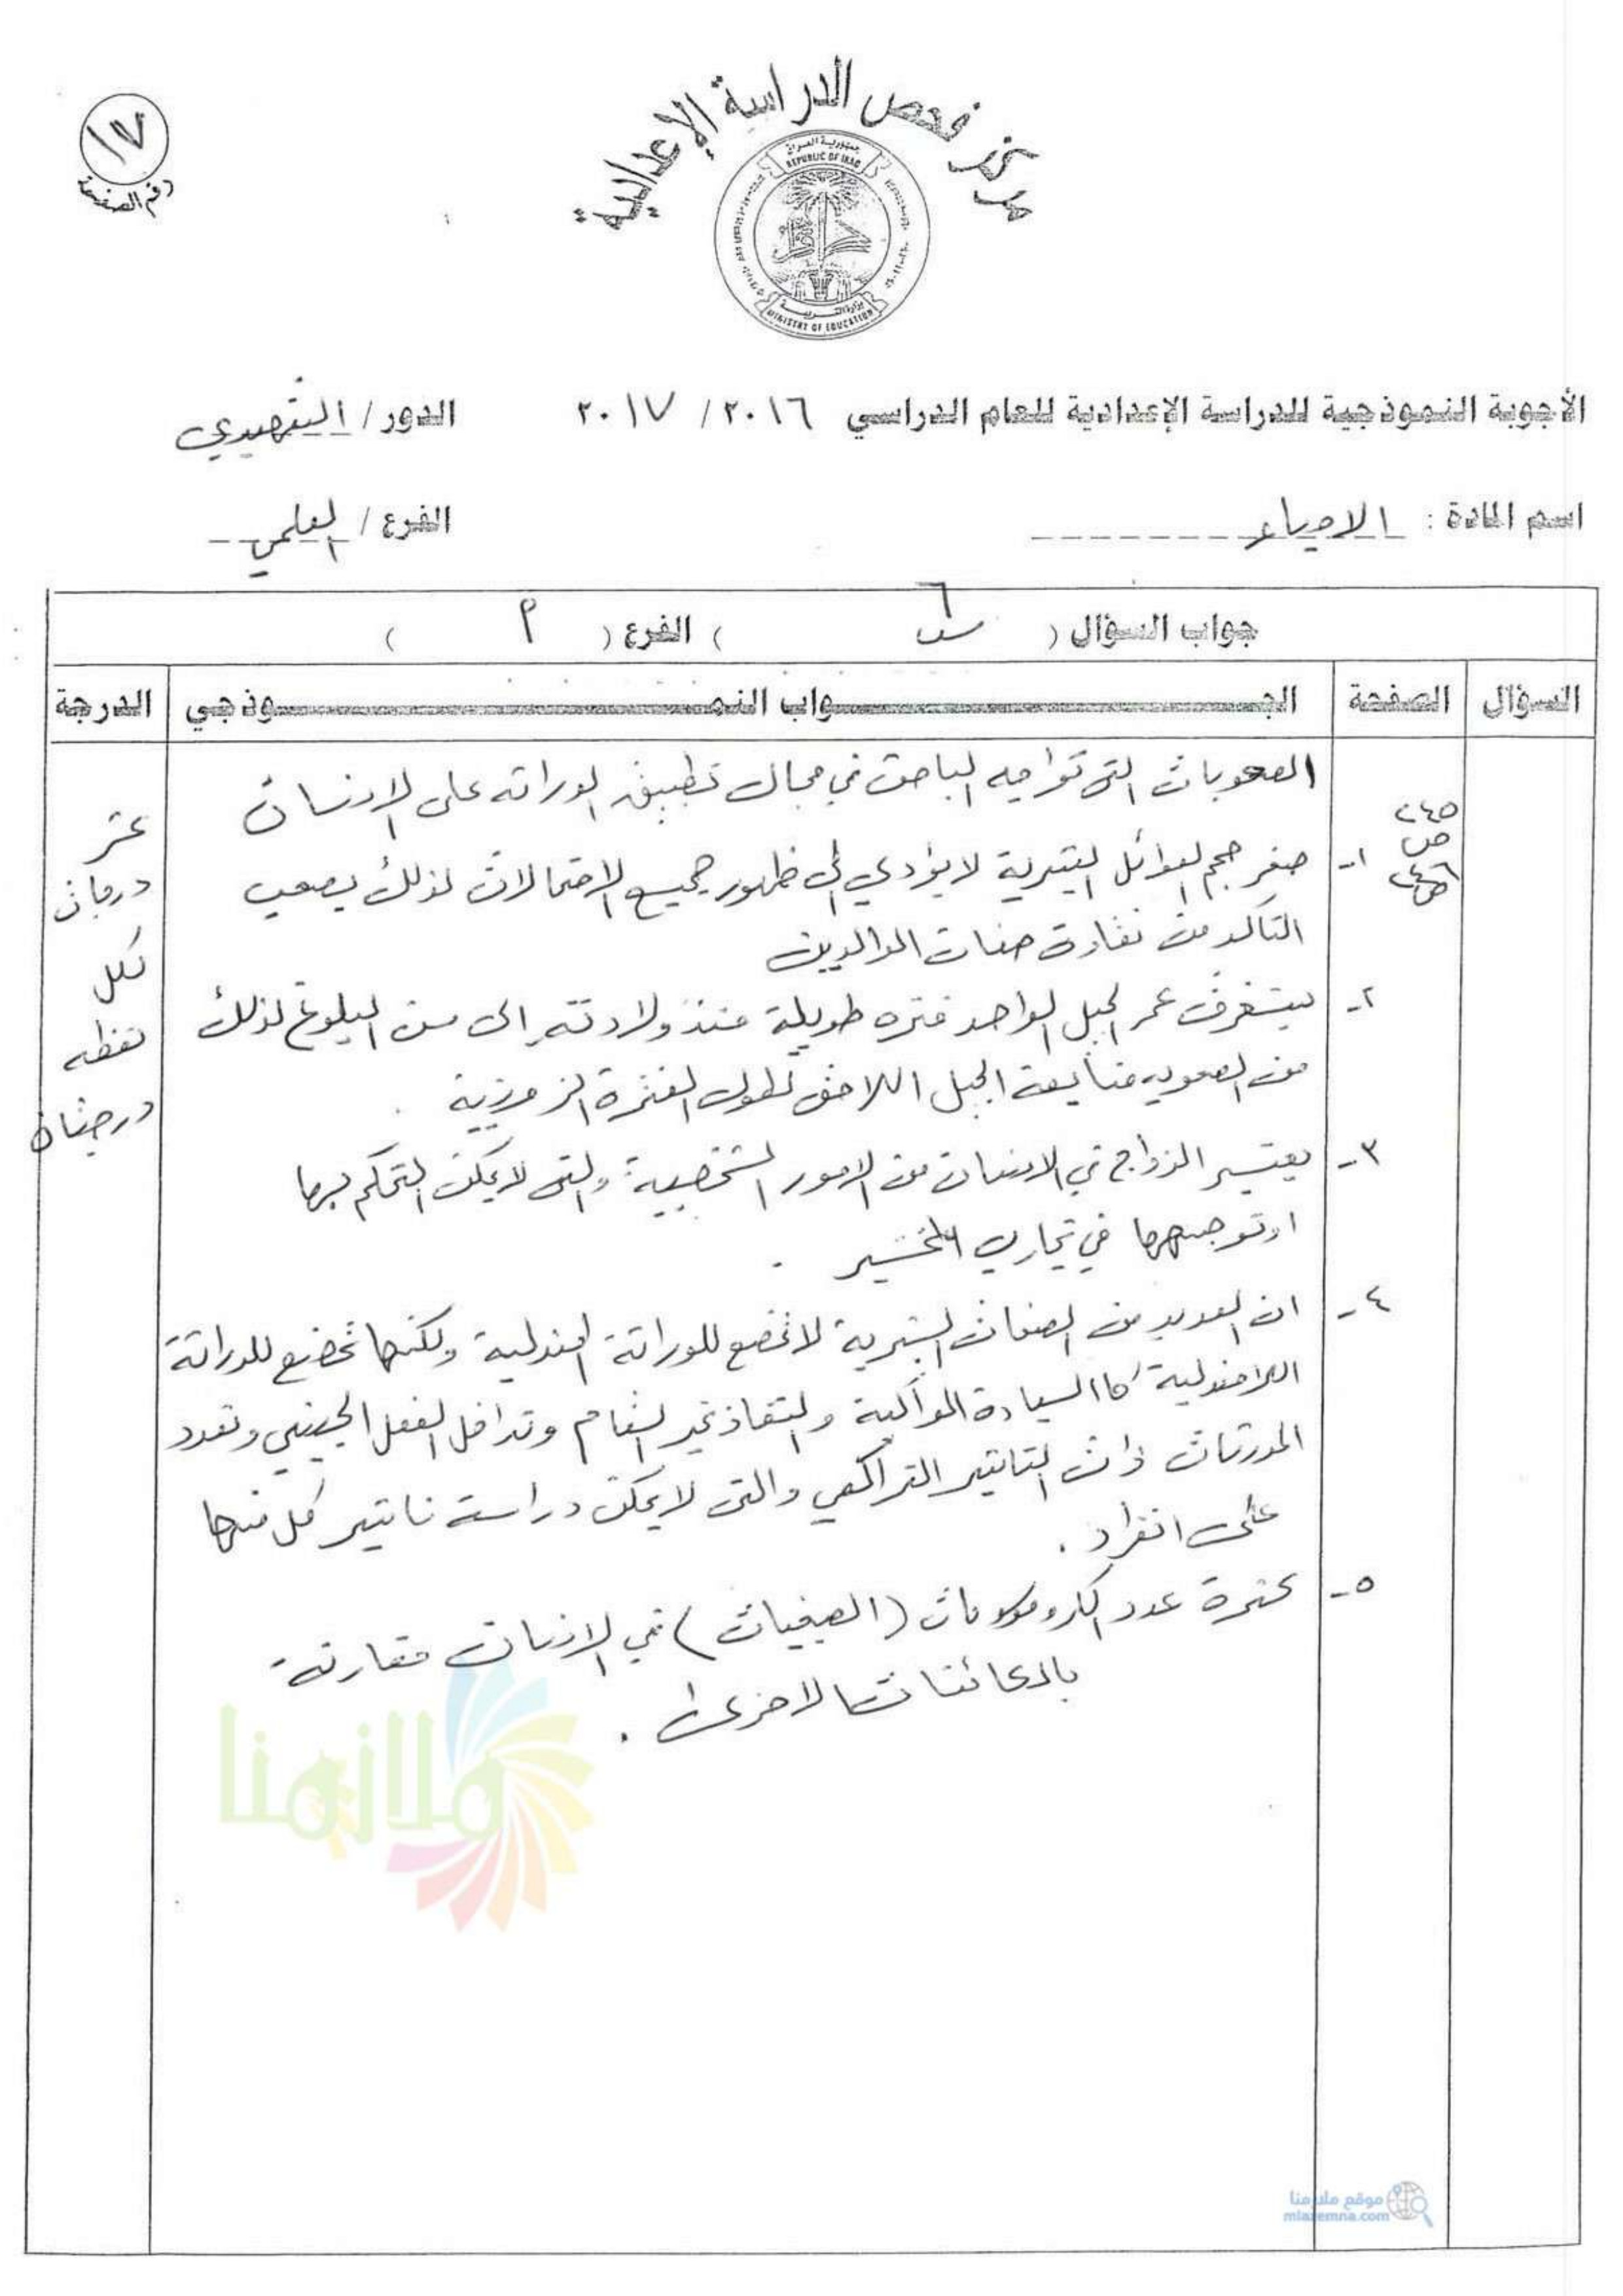 ١٧
رقم الصفحة
مركز فحص الدراسية الإعدادية
جمهورية العراق
REPUBLIC OF IRAQ
وزارة التربية
MINISTRY OF EDUCATION
الأجوبة النموذجية للدراسة الإعدادية للعام الدراسي ٢٠١٦ / ٢٠١٧ الدور / التمهيدي
اسم المادة : الاحياء الفرع / العلمي
جواب السؤال ( س٦ ) الفرع ( ٢ )
السؤال الصفحة الجـواب النمـوذجي الدرجة
الصعوبات التي تواجه الباحث في مجال تطبيق الوراثه على الانسان
١- صغر حجم العوائل البشرية لا يؤدي الى ظهور جميع الاحتمالات لذلك يصعب
التاكد من نقاوة صفات الوالدين
٢- يستغرق عمر الجيل الواحد فتره طويلة منذ ولادته الى سن البلوغ لذلك
من الصعوبه متابعة الجيل اللاحق لطول الفترة الزمزنية .
٣- يعتبر الزواج في الانسان من الامور الشخصية والتي لا يمكن التحكم بها
او توجيهها في تجارب المختبر .
٤- ان العديد من الصفات البشرية لا تخضع للوراثة المندلية ولكنها تخضع للوراثة
اللامندلية كالسيادة المواكبة والنفاذ غير التام وتداخل الفعل الجيني وتعدد
المورثات ذات التاثير التراكمي والتي لا يمكن دراسة تاثير كل منها
على انفراد .
٥- كثرة عدد الكروموسومات (الصبغيات) في الانسان مقارنة
بالكائنات الاخرى .
ص٢٤٥
ص٢٤٦
عشر
درجات
لكل
نقطه
درجتان
ملازمنا
موقع ملازمنا
mlazemna.com